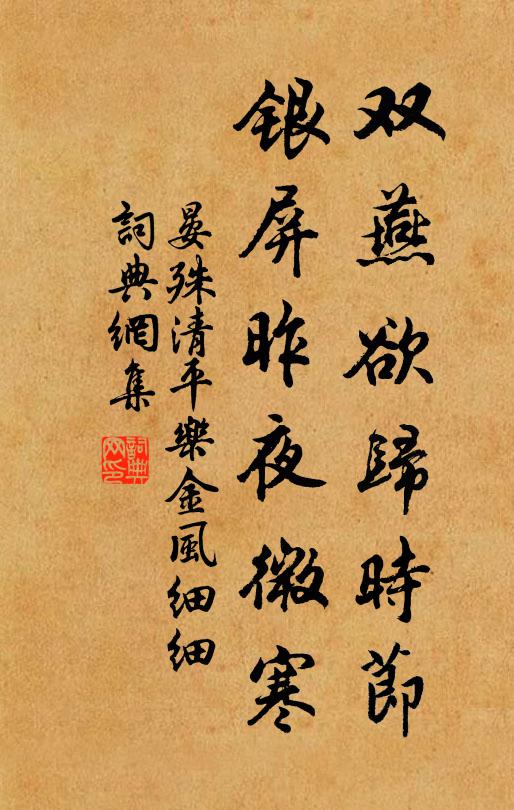 双燕欲歸時節
銀屏昨夜微寒
晏殊清平樂金風细细
詞典網集
詞典網印